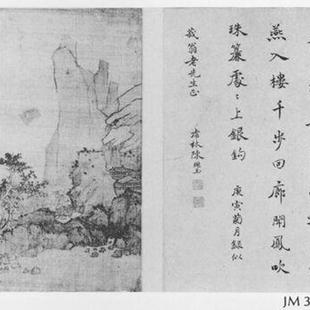 燕入樓千步回廊聞鳳吹
珠簾處〻上銀鉤 庚寅菊月錄似
翁老先生正
林陳
JM 3